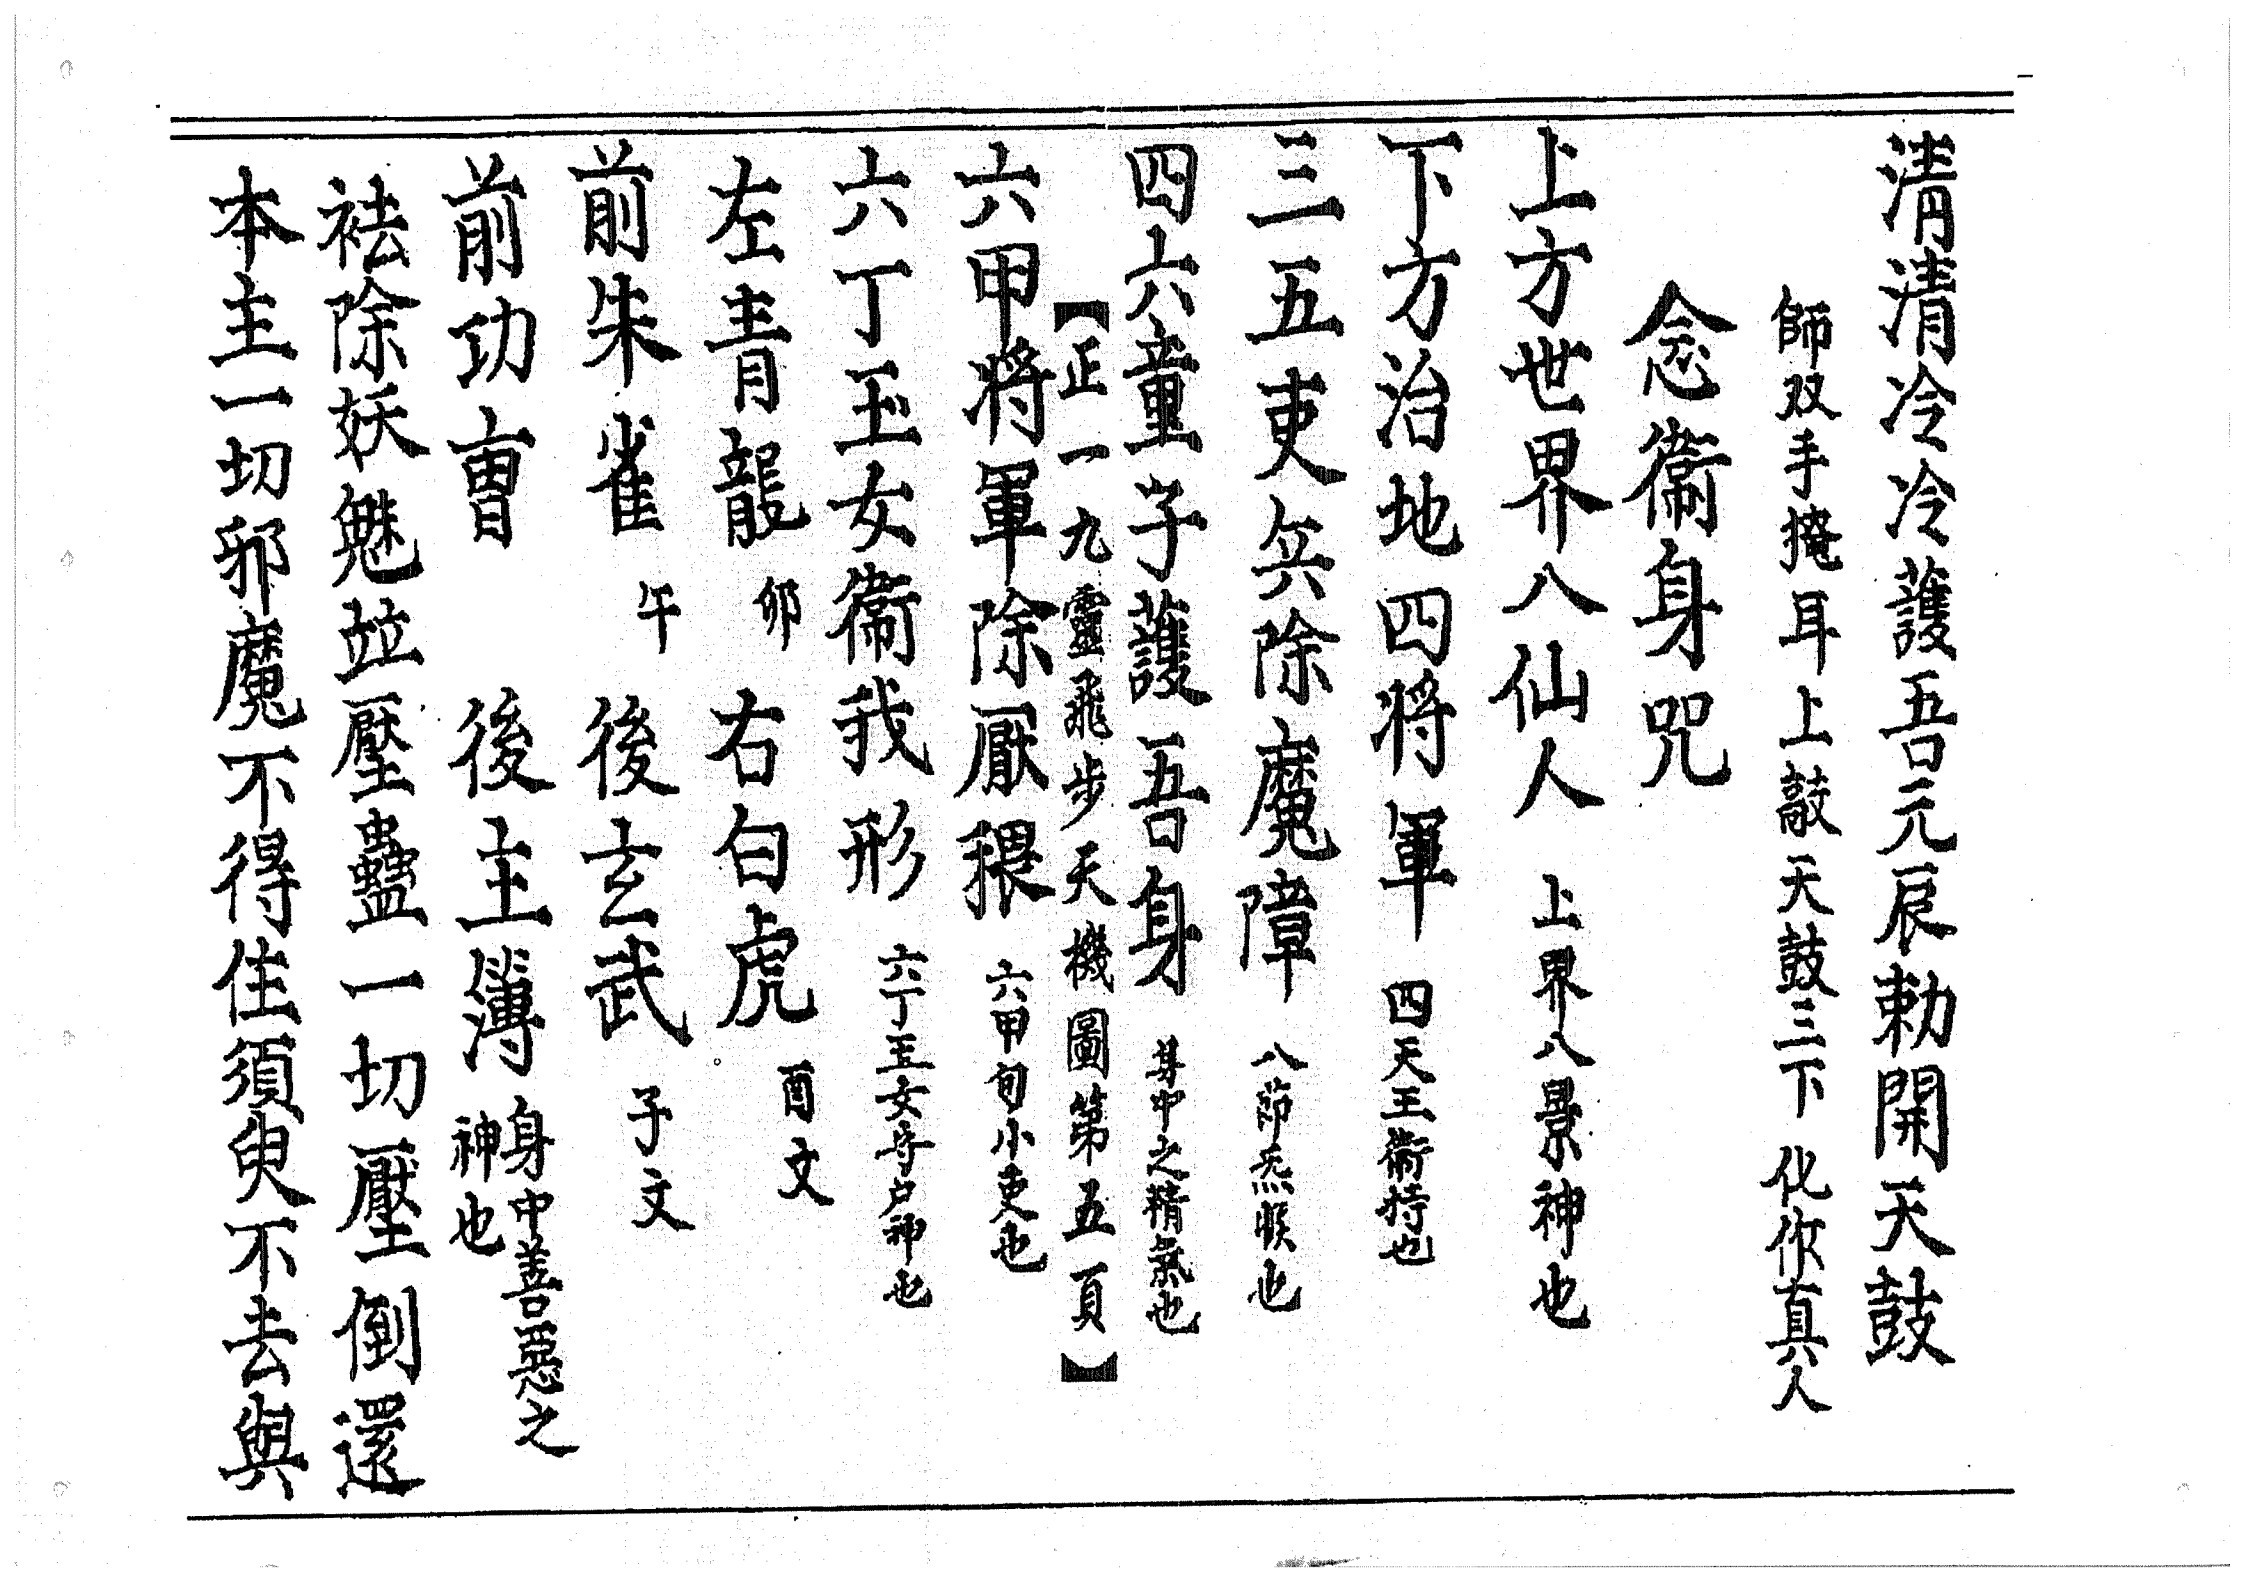 清清冷冷護吾元辰勅開天鼓
師双手掩耳上敲天鼓三下化作真人
念衛身咒
上方世界八仙人 上界八景神也
下方治地四將軍 四天王衛持也
三五吏兵除魔障 八節炁候也
四六童子護吾身 身中之精氣也
【正一九靈飛步天機圖第五頁】
六甲將軍除厭穢 六甲旬小吏也
六丁玉女衛我形 六丁玉女守户神也
左青龍 卯 右白虎 酉文
前朱雀 午 後玄武 子文
前功曹 後主簿 身中善惡之神也
祛除妖魅並壓蠱一切壓倒還
本主一切邪魔不得住須臾不去與